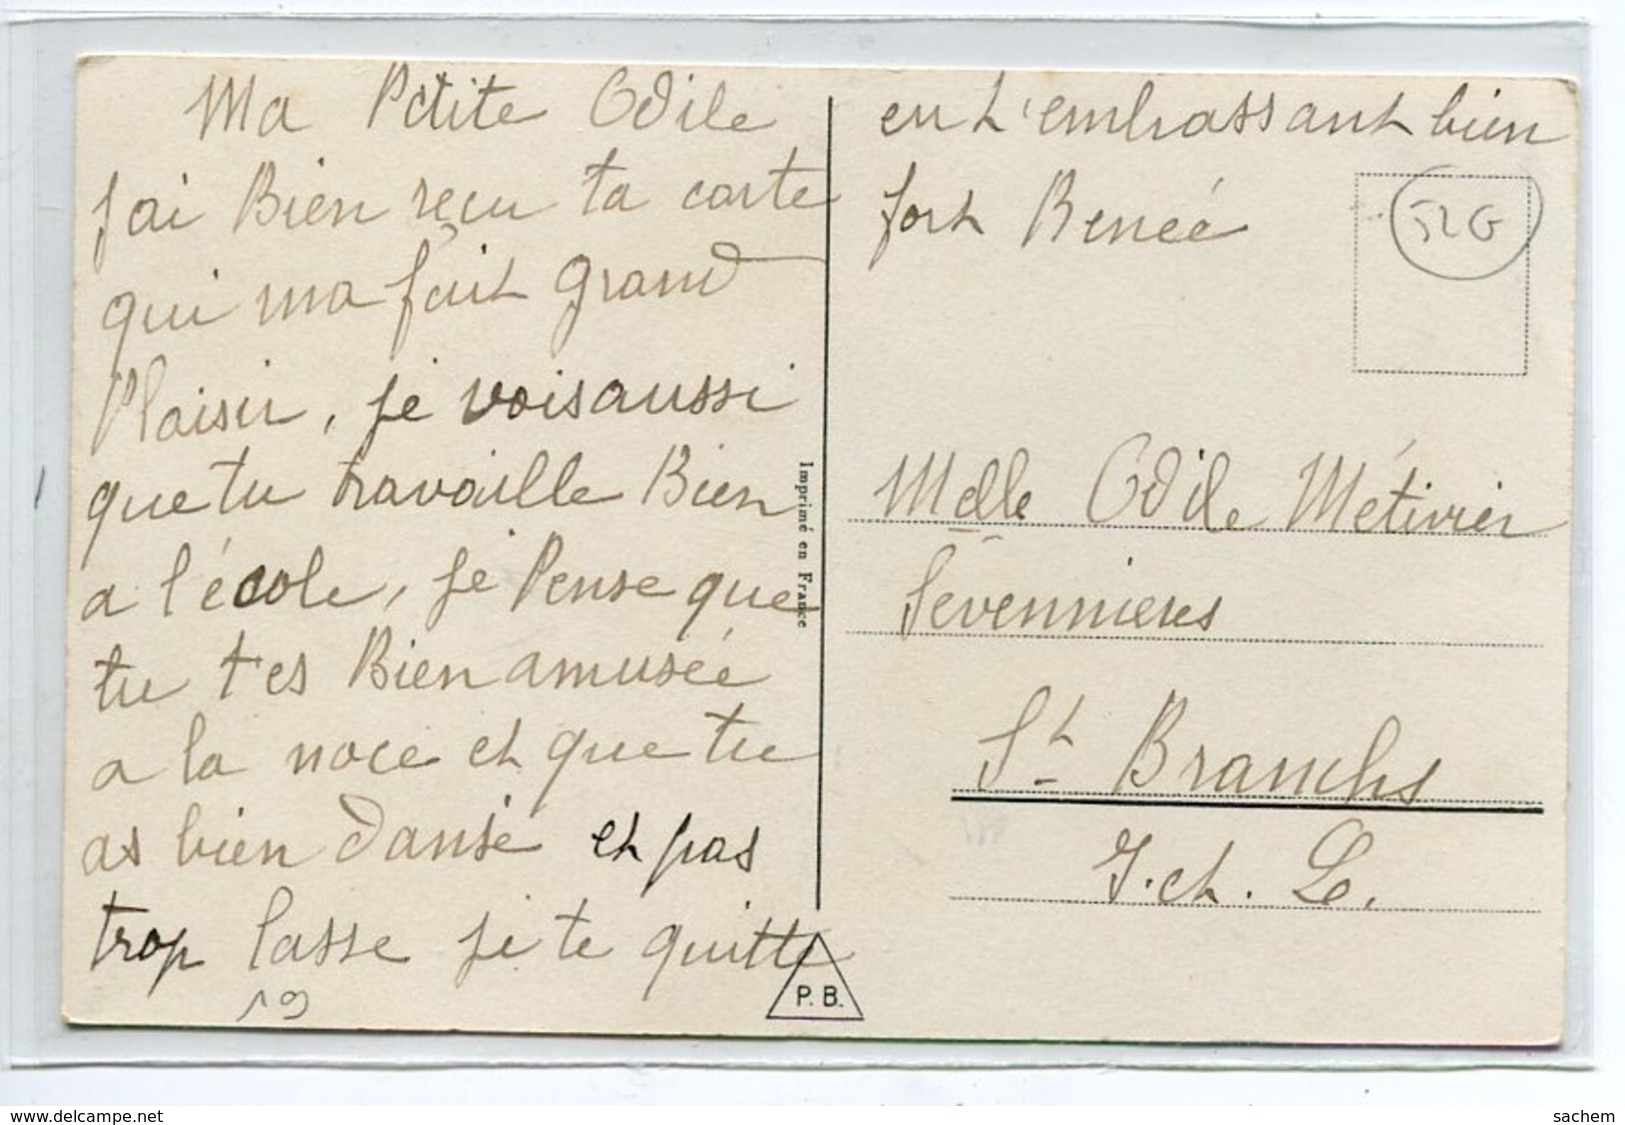 Ma Petite Odile
J'ai Bien reçu ta carte
qui ma fait grand
Plaisir, je vois aussi
que tu travaille Bien
a l'école, je Pense que
tu t'es Bien amusée
a la noce et que tu
as bien dansé et pas
trop lasse je te quitte
19
en t'embrassant bien
fort Renée
52G
Imprimé en France
P. B.
Melle Odile Métivier
Sevennieres
St Branchs
I. et. L.
www.delcampe.net
sachem